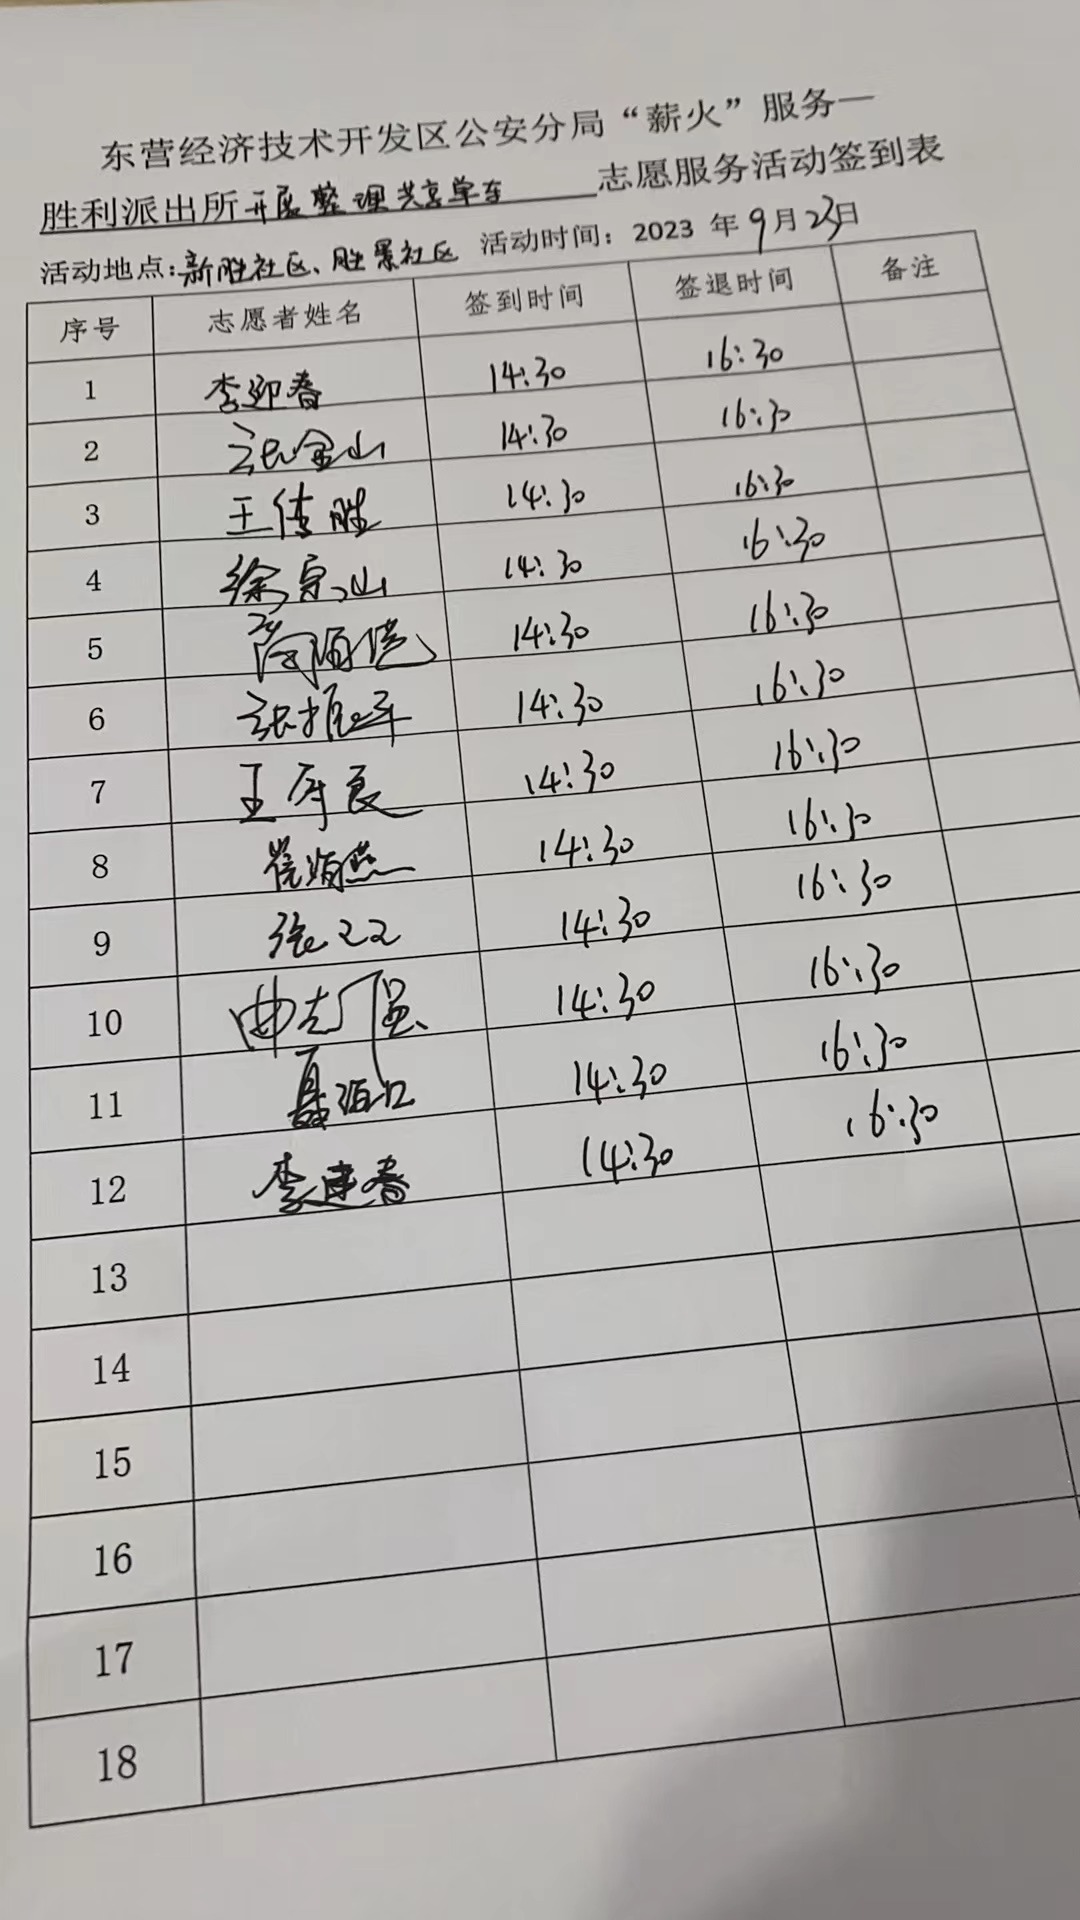 东营经济技术开发区公安分局“薪火”服务—
胜利派出所开展整理共享单车 志愿服务活动签到表
活动地点：新胜社区、胜景社区 活动时间：2023 年 9月 23日
序号 志愿者姓名 签到时间 签退时间 备注
1 李迎春 14:30 16:30
2 张金山 14:30 16:30
3 王传胜 14:30 16:30
4 徐宗山 14:30 16:30
5 14:30 16:30
6 张振军 14:30 16:30
7 王厚良 14:30 16:30
8 崔海燕 14:30 16:30
9 张 14:30 16:30
10 曲志强 14:30 16:30
11 14:30 16:30
12 李建春 14:30 16:30
13
14
15
16
17
18